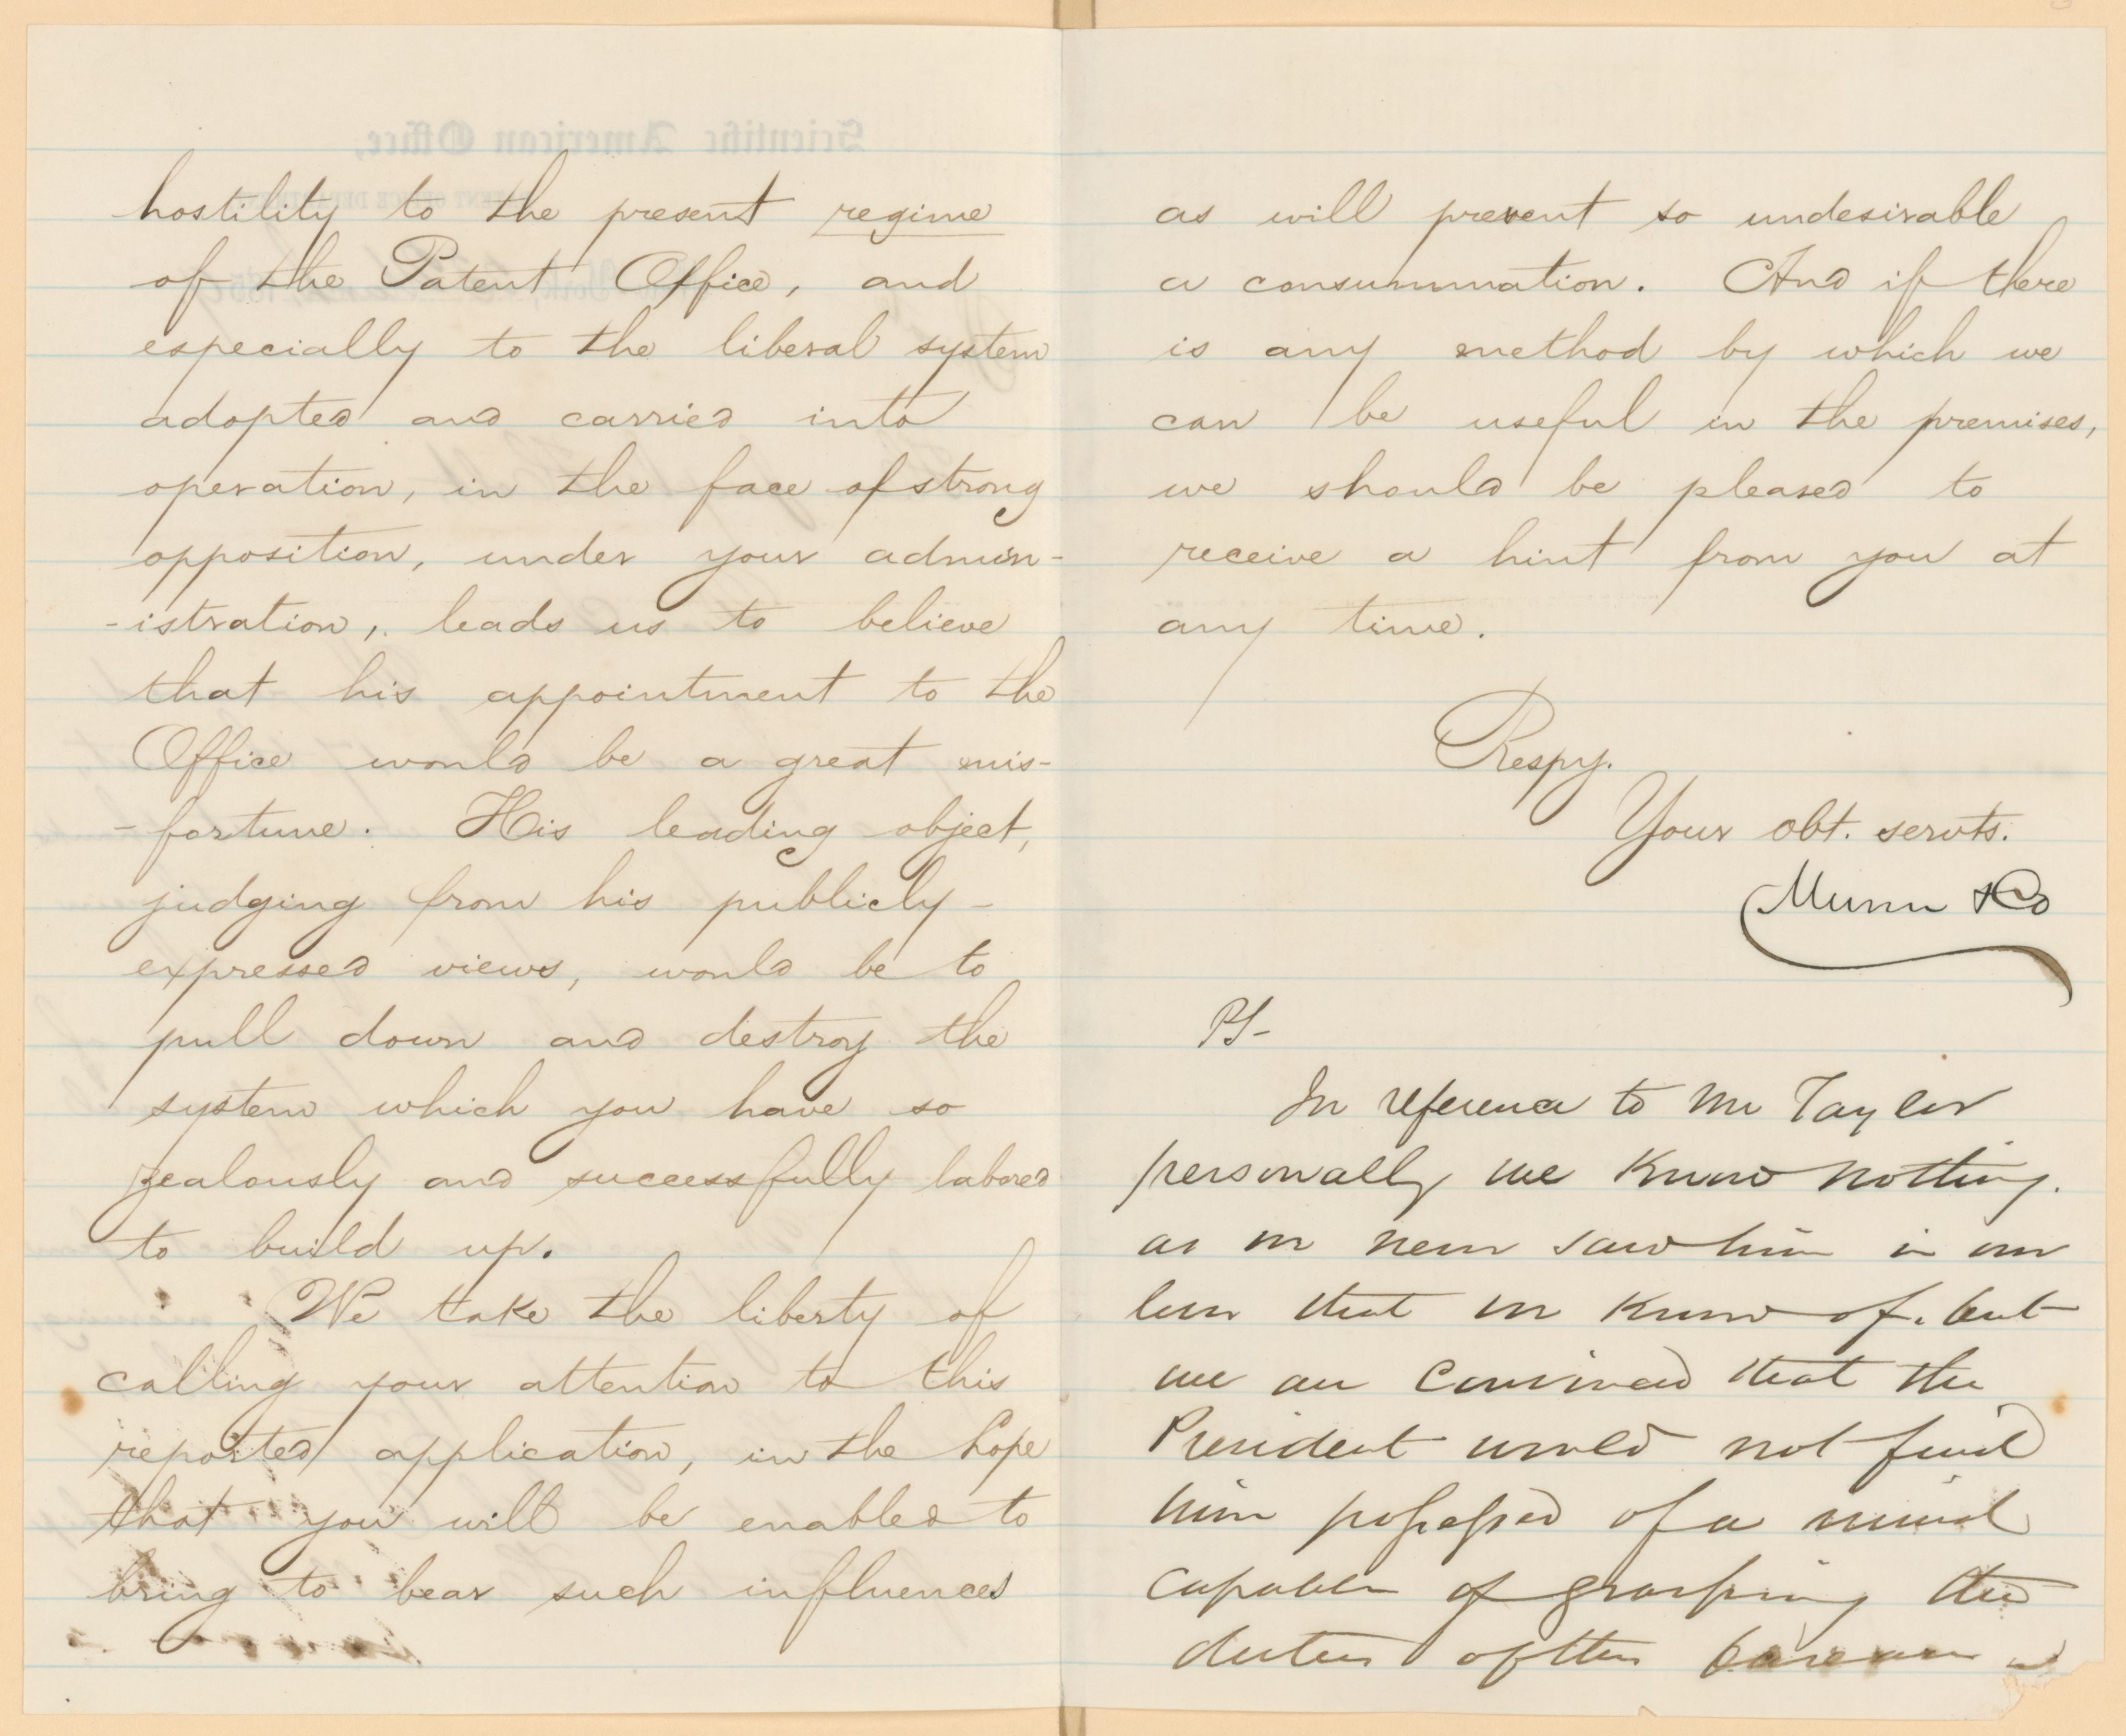 hostility to the present regime
of the Patent Office, and
especially to the liberal system
adopted and carried into
operation, in the face of strong
opposition, under your admin-
-istration, leads us to believe
that his appointment to the
Office would be a great mis-
-fortune. His leading object,
judging from his publicly-
expressed views, would be to
pull down and destroy the
system which you have so
zealously and successfully labored
to build up.
We take the liberty of
calling your attention to this
reported application, in the hope
that you will be enabled to
bring to bear such influences
as will prevent so undesirable
a consummation. And if there
is any method by which we
can be useful in the premises,
we should be pleased to
receive a hint from you at
any time.
Respy.
Your obt. servts.
Munn & Co
PS-
In reference to Mr Taylor
personally we know nothing.
as we never saw him in our
lives that we know of. but
we are convinced that the
President would not find
him possessed of a mind
capable of grasping the
duties of the Bureau
Scientific American Office,